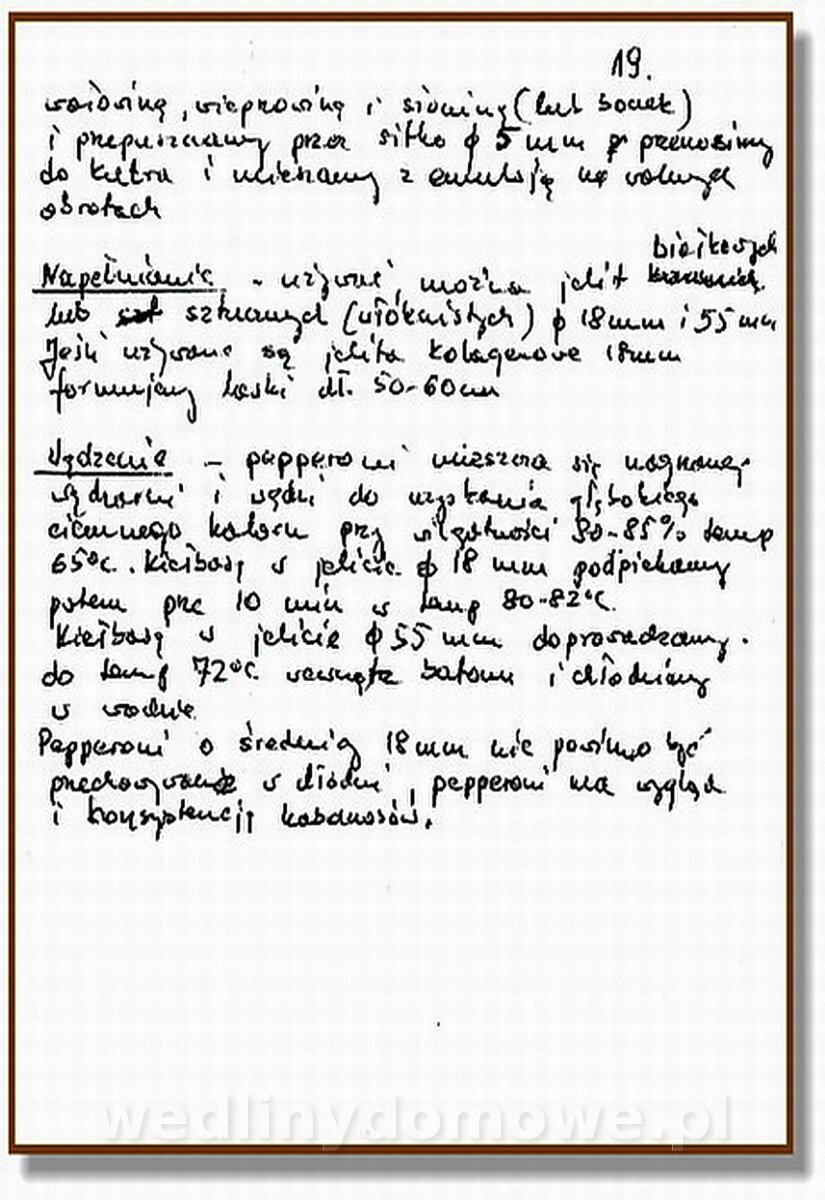 19.
wołowinę, wieprzowinę i słoninę (lub boczek)
i przepuszczamy przez sitko φ 5 mm przenosimy
do kutra i mieszamy z emulsją na wolnych
obrotach
białkowych
Napełnianie - używać można jelit
lub sztucznych (włóknistych) φ 18 mm i 55 mm
Jeśli używane są jelita kolagenowe 18mm
formujemy laski dł. 50-60cm
Wędzenie - pepperoni umieszcza się w ogrzanej
wędzarni i wędzi do uzyskania głębokiego
ciemnego koloru przy wilgotności 80-85% temp
65°C. Kiełbasę w jelicie φ 18 mm podpiekamy
potem prze 10 min w temp 80-82°C.
Kiełbasę w jelicie φ 55 mm doprowadzamy
do temp 72°C wewnątrz batonu i chłodzimy
w wodzie
Pepperoni o średnicy 18 mm nie powinno być
przechowywane w chłodni, pepperoni ma wygląd
i konsystencję kabanosów.
wedlinydomowe.pl